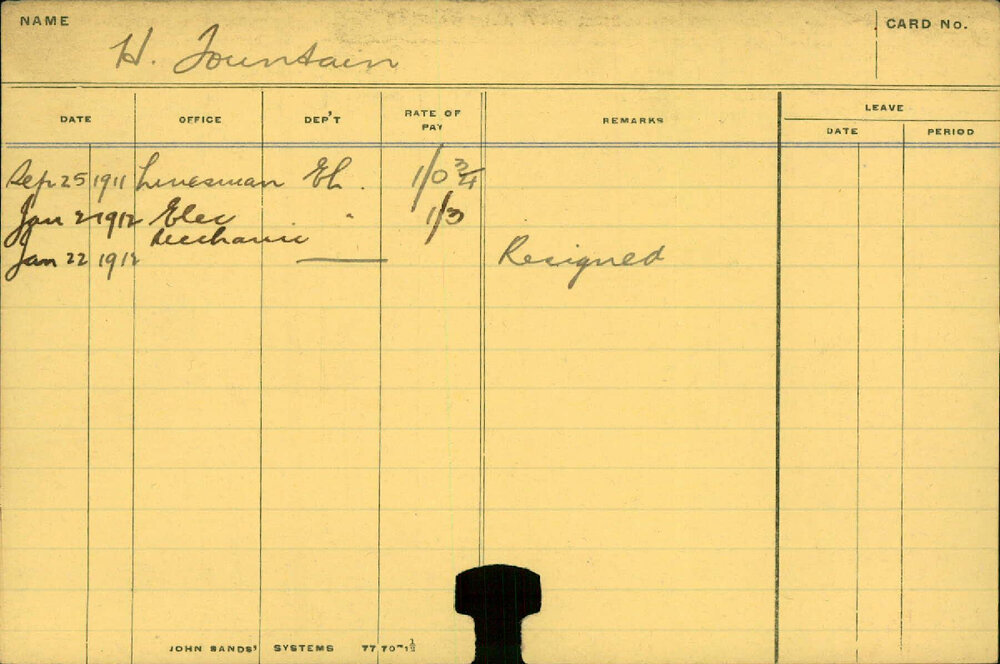 NAME
CARD No.
H. Fountain
DATE OFFICE DEP'T RATE OF PAY REMARKS LEAVE
DATE PERIOD
Sep 25 1911 Linesman El. 1/0 3/4
Jan 2 1912 Elec " 1/3
Mechanic
Jan 22 1912 —— Resigned
JOHN SANDS' SYSTEMS 7770-1½